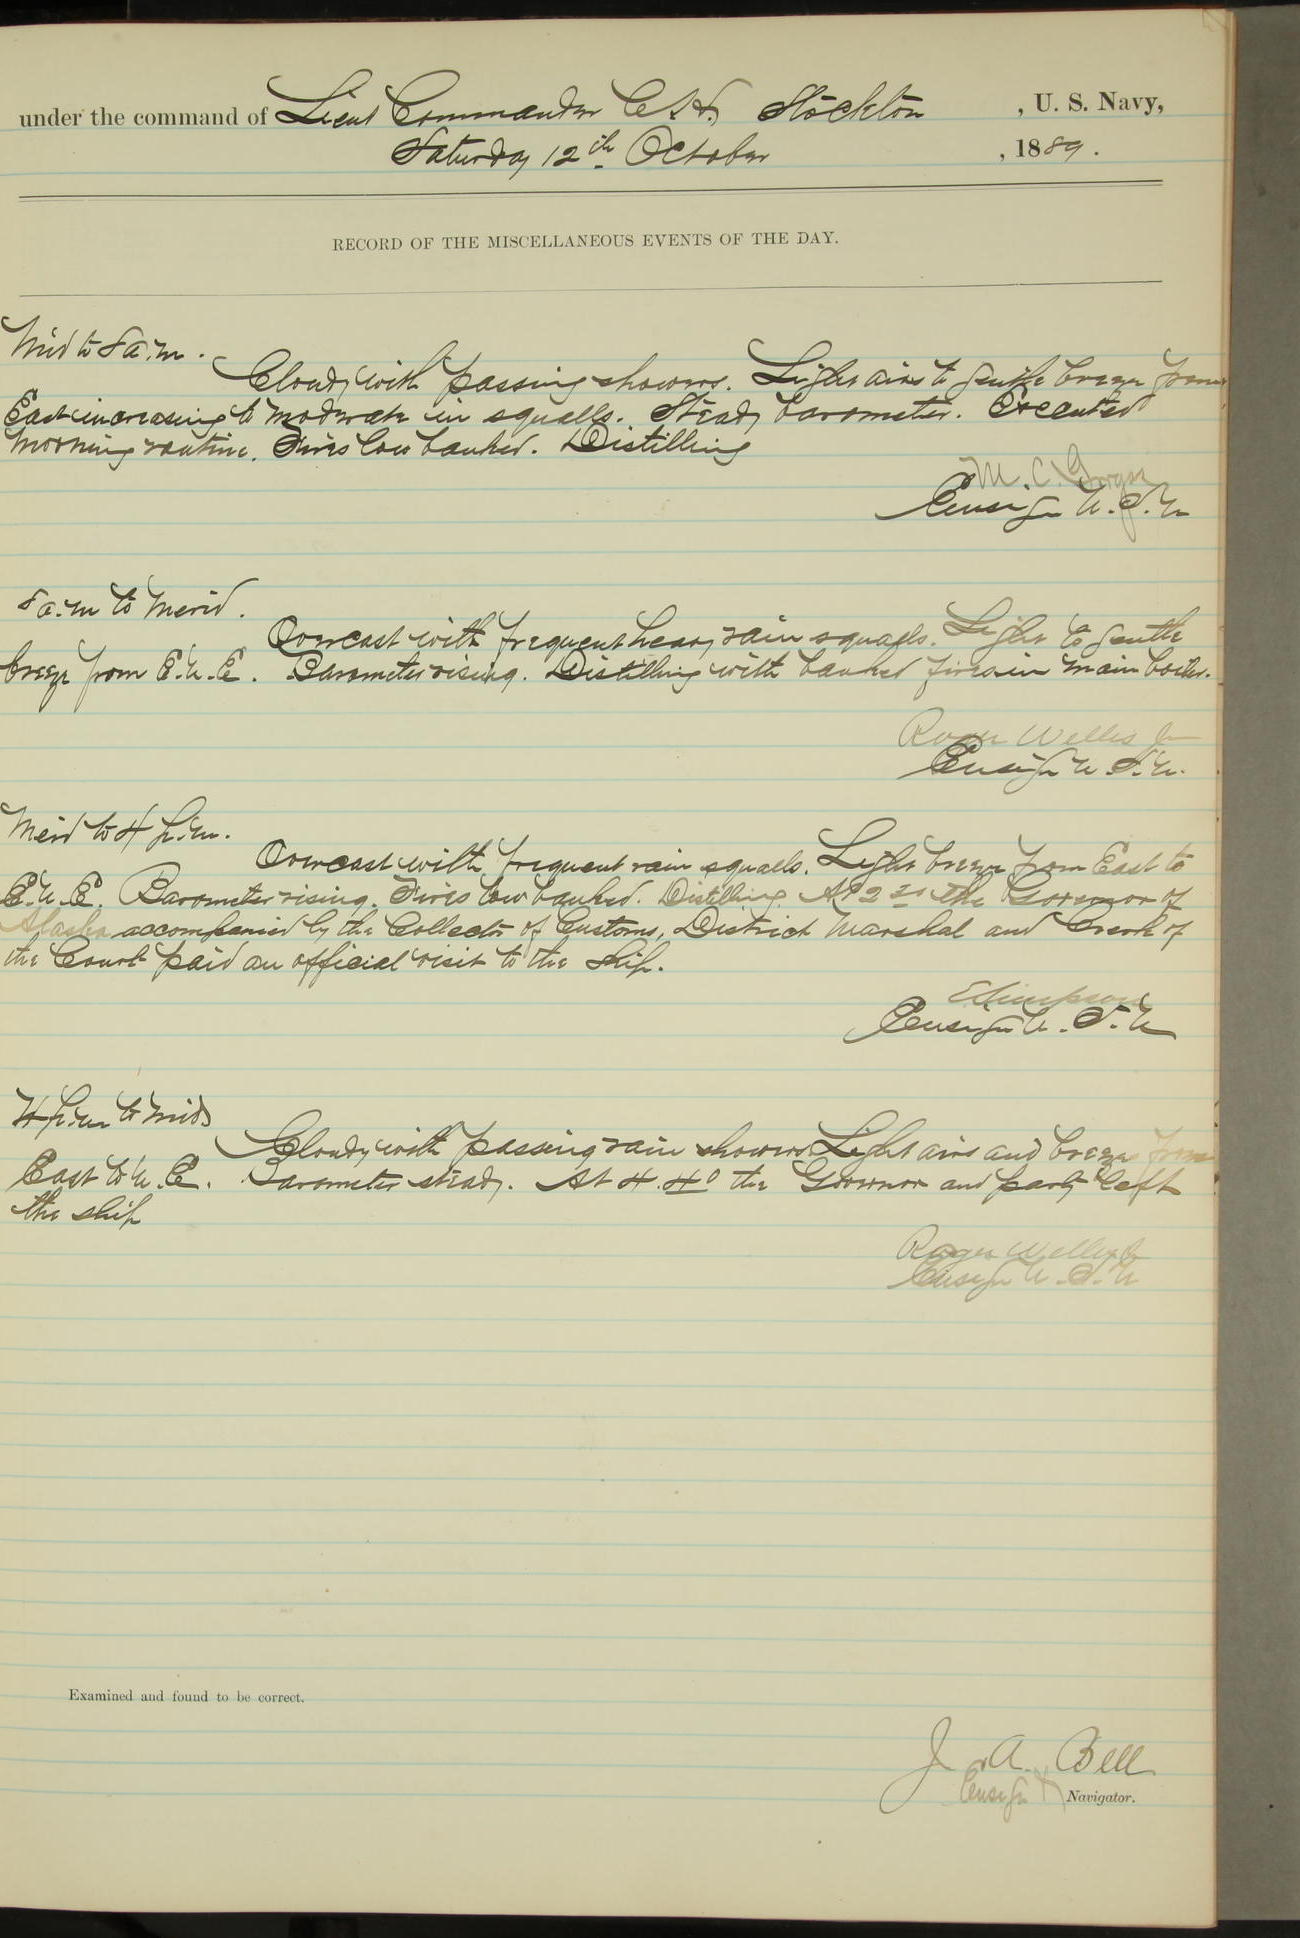 under the command of Lieut Commander C. H. Stockton, U. S. Navy,
Saturday 12th October, 1889.
RECORD OF THE MISCELLANEOUS EVENTS OF THE DAY.
Mid to 8 a.m.
Cloudy with passing showers. Light airs to gentle breeze from
East increasing to moderate in squalls. Steady barometer. Executed
morning routine. Fires low banked. Distilling
M. C. Gorgas
Ensign U.S.N
8 a.m to Merid.
Overcast with frequent heavy rain squalls. Light to gentle
breeze from E.N.E. Barometer rising. Distilling with banked fires in main boiler.
Roger Welles Jr
Ensign U.S.N.
Merid to 4 p.m.
Overcast with frequent rain squalls. Light breeze from East to
E.N.E. Barometer rising. Fires low banked. Distilling. At 2 the Governor of
Alaska accompanied by the Collector of Customs, District Marshal and Clerk of
the Court paid an official visit to the ship.
E Simpson
Ensign U.S.N
4 p.m to Mid
Cloudy with passing rain showers. Light airs and breeze from
East to N.E. Barometer steady. At 4.40 the Governor and party left
the ship
Roger Welles Jr
Ensign U.S.N
Examined and found to be correct.
J. A. Bell
Ensign Navigator.